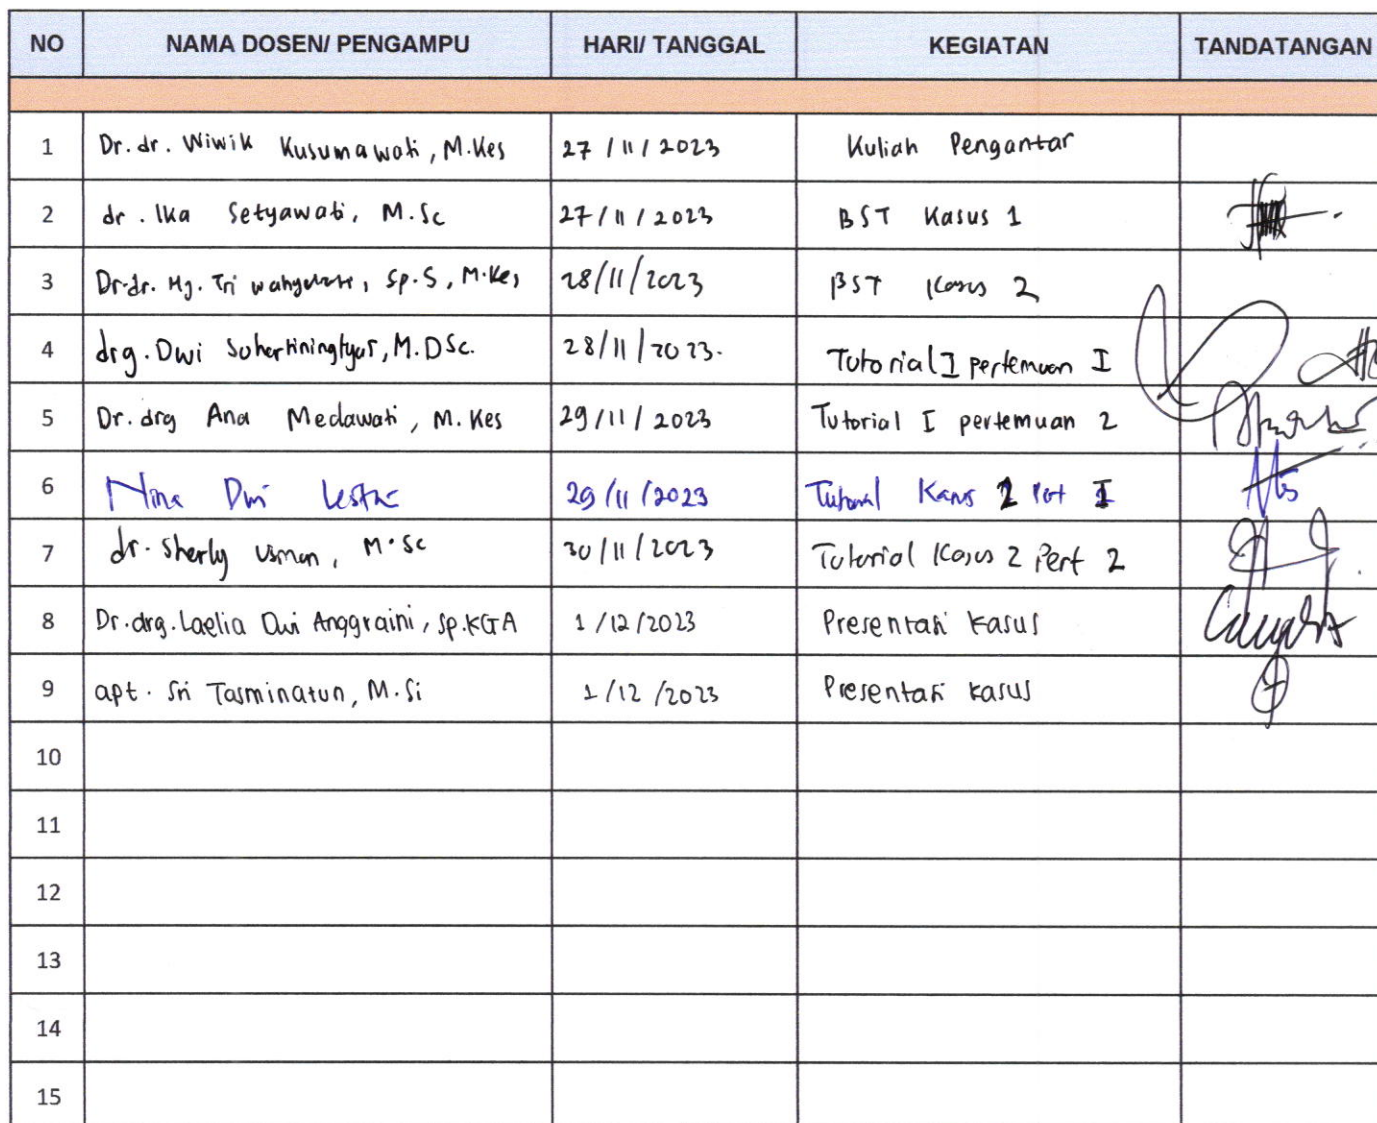 NO NAMA DOSEN/ PENGAMPU HARI/ TANGGAL KEGIATAN TANDATANGAN
1 Dr. dr. Wiwik Kusumawati, M.Kes 27/11/2023 Kuliah Pengantar
2 dr. Ika Setyawati, M.Sc 27/11/2023 BST Kasus 1
3 Dr. dr. Hj. Tri Sp.S, M.Kes 28/11/2023 BST Kasus 2
4 drg. Dwi M.DSc. 28/11/2023. Tutorial I pertemuan I
5 Dr. drg Ana Medawati, M.Kes 29/11/2023 Tutorial I pertemuan 2
6 Nina Dwi Lestari 29/11/2023 Tutorial Kasus 2 I
7 dr. Sherly Usman, M.Sc 30/11/2023 Tutorial Kasus 2 Pert 2
8 Dr. drg. Laelia Dwi Anggraini, Sp.KGA 1/12/2023 Presentasi Kasus
9 apt. Sri Tasminatun, M.Si 1/12/2023 Presentasi Kasus
10
11
12
13
14
15